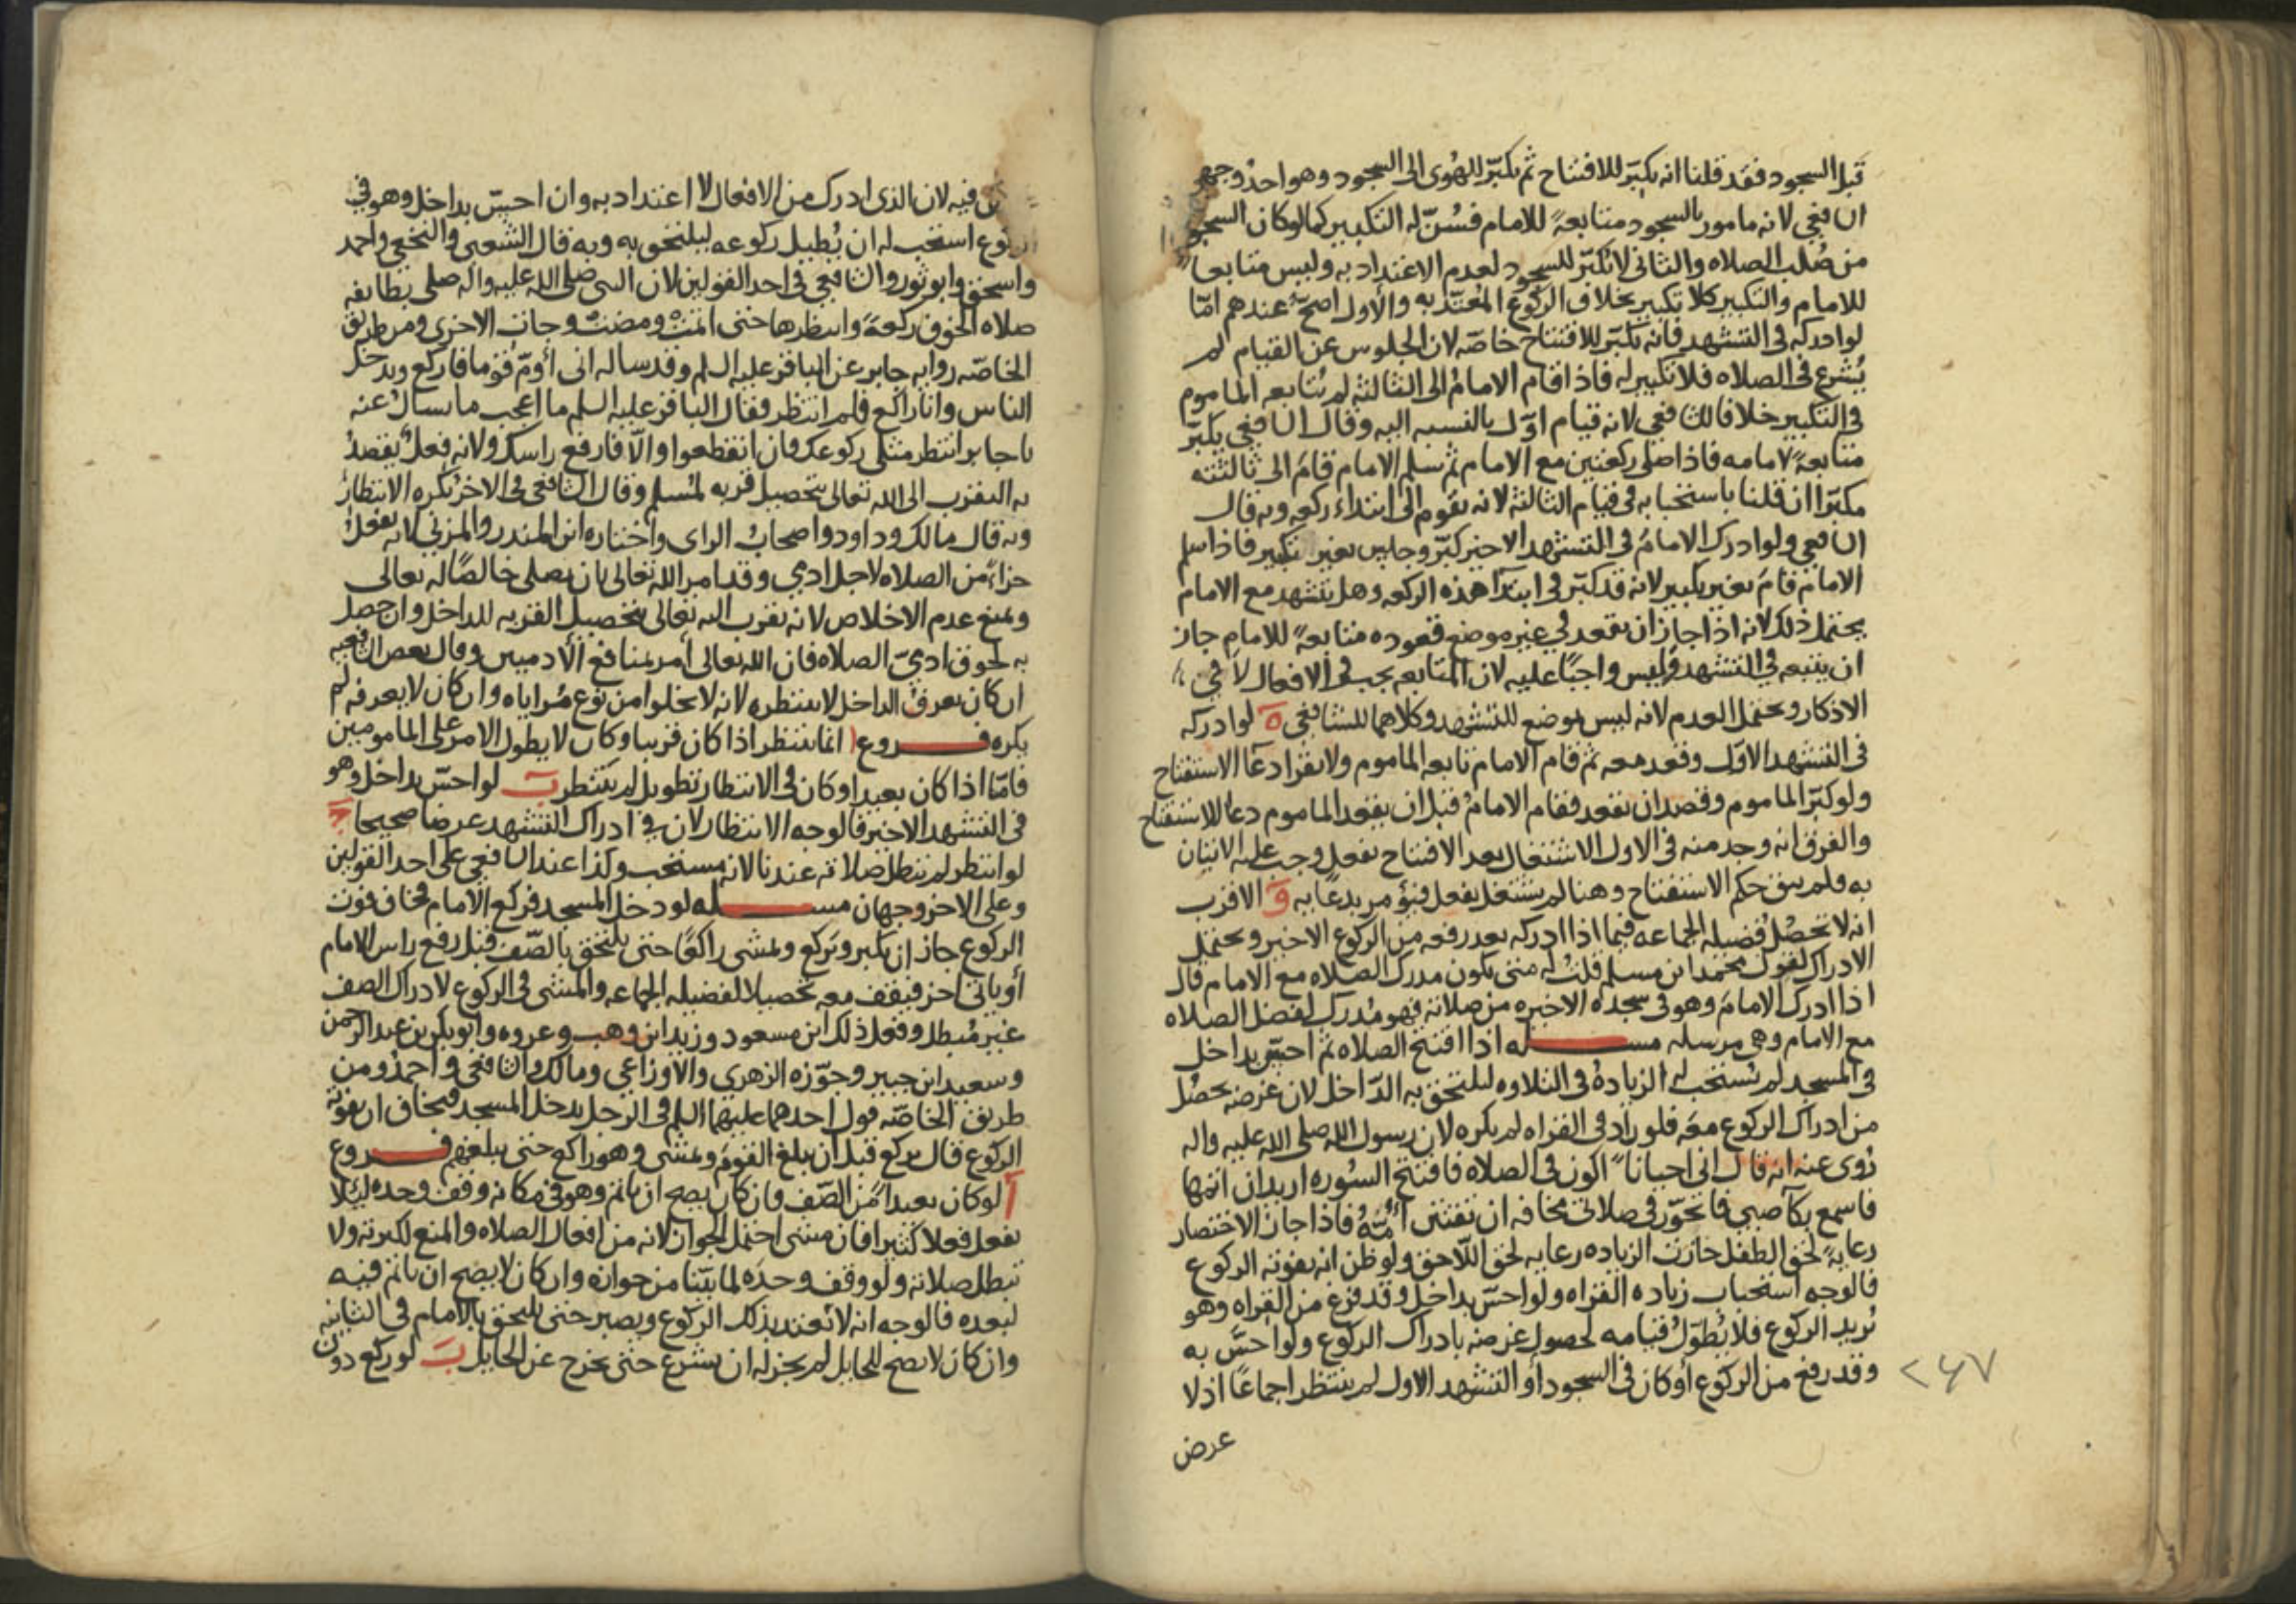 قبل السجود فقد قلنا انه يكبّر للافتتاح ثم يكبّر للهُوى الى السجود وهو احدُ وجهى
الشافعي لانه مامور بالسجود متابعةً للامام فسُنّ له التكبير كما لو كان السجود
من صُلب الصلاه والثانى لا يكبّر للسجود لعدم الاعتداد به وليس متابعا
للامام والتكبير كلا تكبير بخلاف الركوع المُعتدّ به والاول اصحّ عندهم امّا
لو ادركه فى التشهد فانه يكبّر للافتتاح خاصّه لان الجلوس عن القيام لم
يُشرع فى الصلاه فلا تكبير له فاذا قام الامامُ الى الثالثة لم يُتابعه الماموم
فى التكبير خلافا للشافعي لانه قيام اوّل بالنسبه اليه وقال الشافعي يكبّر
متابعةً لامامه فاذا صلى ركعتين مع الامام ثم سلم الامام قامَ الى ثالثته
مكبّرا ان قلنا باستحبابه فى قيام الثالثة لانه يقوم الى ابتداء ركعه وبه قال
الشافعي ولو ادرك الامامُ فى التشهد الاخير كبّر وجلس بغير تكبير فاذا سلم
الامام قامَ بغير تكبير لانه قد كبّر فى ابتدآ هذه الركعه وهل يتشهد مع الامام
يحتمل ذلك لانه اذا جاز ان يقعد في غير موضع قعوده متابعةً للامام جاز
ان يتبعه فى التشهد وليس واجبًا عليه لان المتابعه يجب فى الافعال لا في
الاذكار ويحتمل العدم لانه ليس موضع للتشهد وكلاهما للشافعي ه لو ادركه
فى التشهد الاوّل وقعد معه ثم قام الامام تابعه الماموم ولا يقرا دعآ الاستفتاح
ولو كبّر الماموم وقصد ان يقعد فقام الامامُ قبل ان يقعد الماموم دعا للاستفتاح
والفرق انه وجد منه فى الاول الاشتغال بعد الافتتاح بفعل وجب عليه الاتيان
به فلم يبق حكم الاستفتاح وهنا لم يشتغل بفعل فيؤمر بدعآ به و الاقرب
انه لا تحصُل فضيله الجماعه فيما اذا ادركه بعد رفعه من الركوع الاخير ويحتمل
الادراك لقول محمد ابن مسلم قلت له متى يكون مدرك الصلاه مع الامام قال
اذا ادرك الامامَ وهو فى سجده الاخيره من صلاته فهو مُدرك لفضل الصلاه
مع الامام وهى مرسله مسـله اذا افتتح الصلاه ثم احسّ بداخل
فى المسجد لم يُستحب له الزيادة فى التلاوه ليلتحق به الدّاخل لان غرضه يحصُل
من ادراك الركوع معَه فلو زاد فى القراه لم يكره لان رسول الله صلى الله عليه واله
رُوى عنه انه قال انى احياناً اكون فى الصلاه فافتتح السُوره اريد ان اتمها
فاسمع بكآ صبي فاتحوّز فى صلاتى مخافه ان تفتتن اُمّهُ فاذا جاز الاختصار
رعايةً لحق الطفل جازت الزياده رعايه لحق اللّاحق ولو ظن انه يفوته الركوع
فالوجه استحباب زياده القراه ولو احسّ بداخل وقد فرغ من القراه وهو
يُريد الركوع فلا يُطوّلُ قيامه لحصول غرضه بادراك الركوع ولو احسّ به
وقد رفع من الركوع أو كان فى السجود أو التشهد الاول لم ينتظر اجماعًا اذ لا
٢٤٧
عرض
فيه لان الذى ادرك من الافعال لا اعتداد به وان احسّ بداخل وهو في
الركوع استحب له ان يُطيل ركوعه ليلتحق به وبه قال الشعبي والنخعي واحمد
واسحق وابو ثور والشافعي فى احد القولين لان النبى صلى الله عليه واله صلى بطايفه
صلاه الخوف ركعةً وانتظرها حتى اتمّتْ ومضتْ وجات الاخرى ومن طريق
الخاصّه روايه جابر عن الباقر عليه السلم وقد ساله انى أؤمّ قوما فاركع ويدخل
الناس وانا راكع فلم انتظر فقال الباقر عليه السلم ما اعجب ما يسال عنه
يا جابر انتظر مثلى ركوعك فان انقطعوا والّا فارفع راسك ولانه فعلٌ يقصدُ
به التقرب الى الله تعالى بتحصيل قربه لمُسلم وقال الشافعي فى الاخر يُكره الانتظارُ
وبه قال مالك وداود واصحابُ الراى واختاره ابن المنذر والمزني لانه يفعلُ
جزاءً من الصلاه لاجل ادمي وقد امر الله تعالى بان يصلى خالصًا له تعالى
ويمنع عدم الاخلاص لانه تقرب اليه تعالى بتحصيل القربه للداخل وان حصل
به لحوق ادميّ الصلاه فان الله تعالى أمر بمنافع الأدميين وقال بعض الشافعيه
ان كان يعرفُ الداخل لا ينتظره لانه لا يخلوا من نوع مُراياه وان كان لا يعرفه لم
يكره فــروع ا انما ينتظر اذا كان قريبا وكان لا يطول الامر على المامومين
فامّا اذا كان بعيدا وكان فى الانتظار تطويل لم ينتظر ب لو احسّ بداخل وهو
فى التشهد الاخير فالوجه الانتظار لان في ادراك التشهد غرضا صحيحا ج
لو انتظر لم تبطل صلاته عندنا لانه مستحب وكذا عند الشافعي على احد القولين
وعلى الاخر وجهان مسـله لو دخل المسجد فركع الامام فخاف فوت
الركوع جاز ان يكبر ويَركع ويمشى راكعًا حتى يلتحق بالصّف قبل رفع راس الامام
أو ياتى اخر فيقف معه تحصيلا لفضيله الجماعه والمشى فى الركوع لادراك الصف
غير مُبطل وفعل ذلك ابن مسعود وزيد ابن وهب وعروه وابو بكر بن عبد الرحمن
وسعيد ابن جبير وجوّزه الزهري والاوزاعي ومالك والشافعي واحمدُ ومن
طريق الخاصّه قول احدهما عليهما السلم فى الرجل يدخل المسجد فيخاف ان يفوته
الركوع قال يركع قبل أن يبلغ القومَ ويمشى وهو راكع حتى يبلغهم فــروع
ا لو كان بعيداً من الصّف فان كان يصح ان ياتم وهو فى مكانه وقف وحده ليلّا
يفعل فعلا كثيرا فان مشى احتمل الجواز لانه من افعال الصلاه والمنع لكثرته ولا
تبطل صلاته ولو وقف وحدَه لما بيّنا من جوازه وان كان لا يصح ان ياتم فيه
لبعده فالوجه انه لا يعتد بذلك الركوع ويصبر حتى يلتحق بالامام فى الثانيه
وان كان لا يصح للحايل لم يجز له ان يشرع حتى يخرج عن الحايل ب لو ركع دون